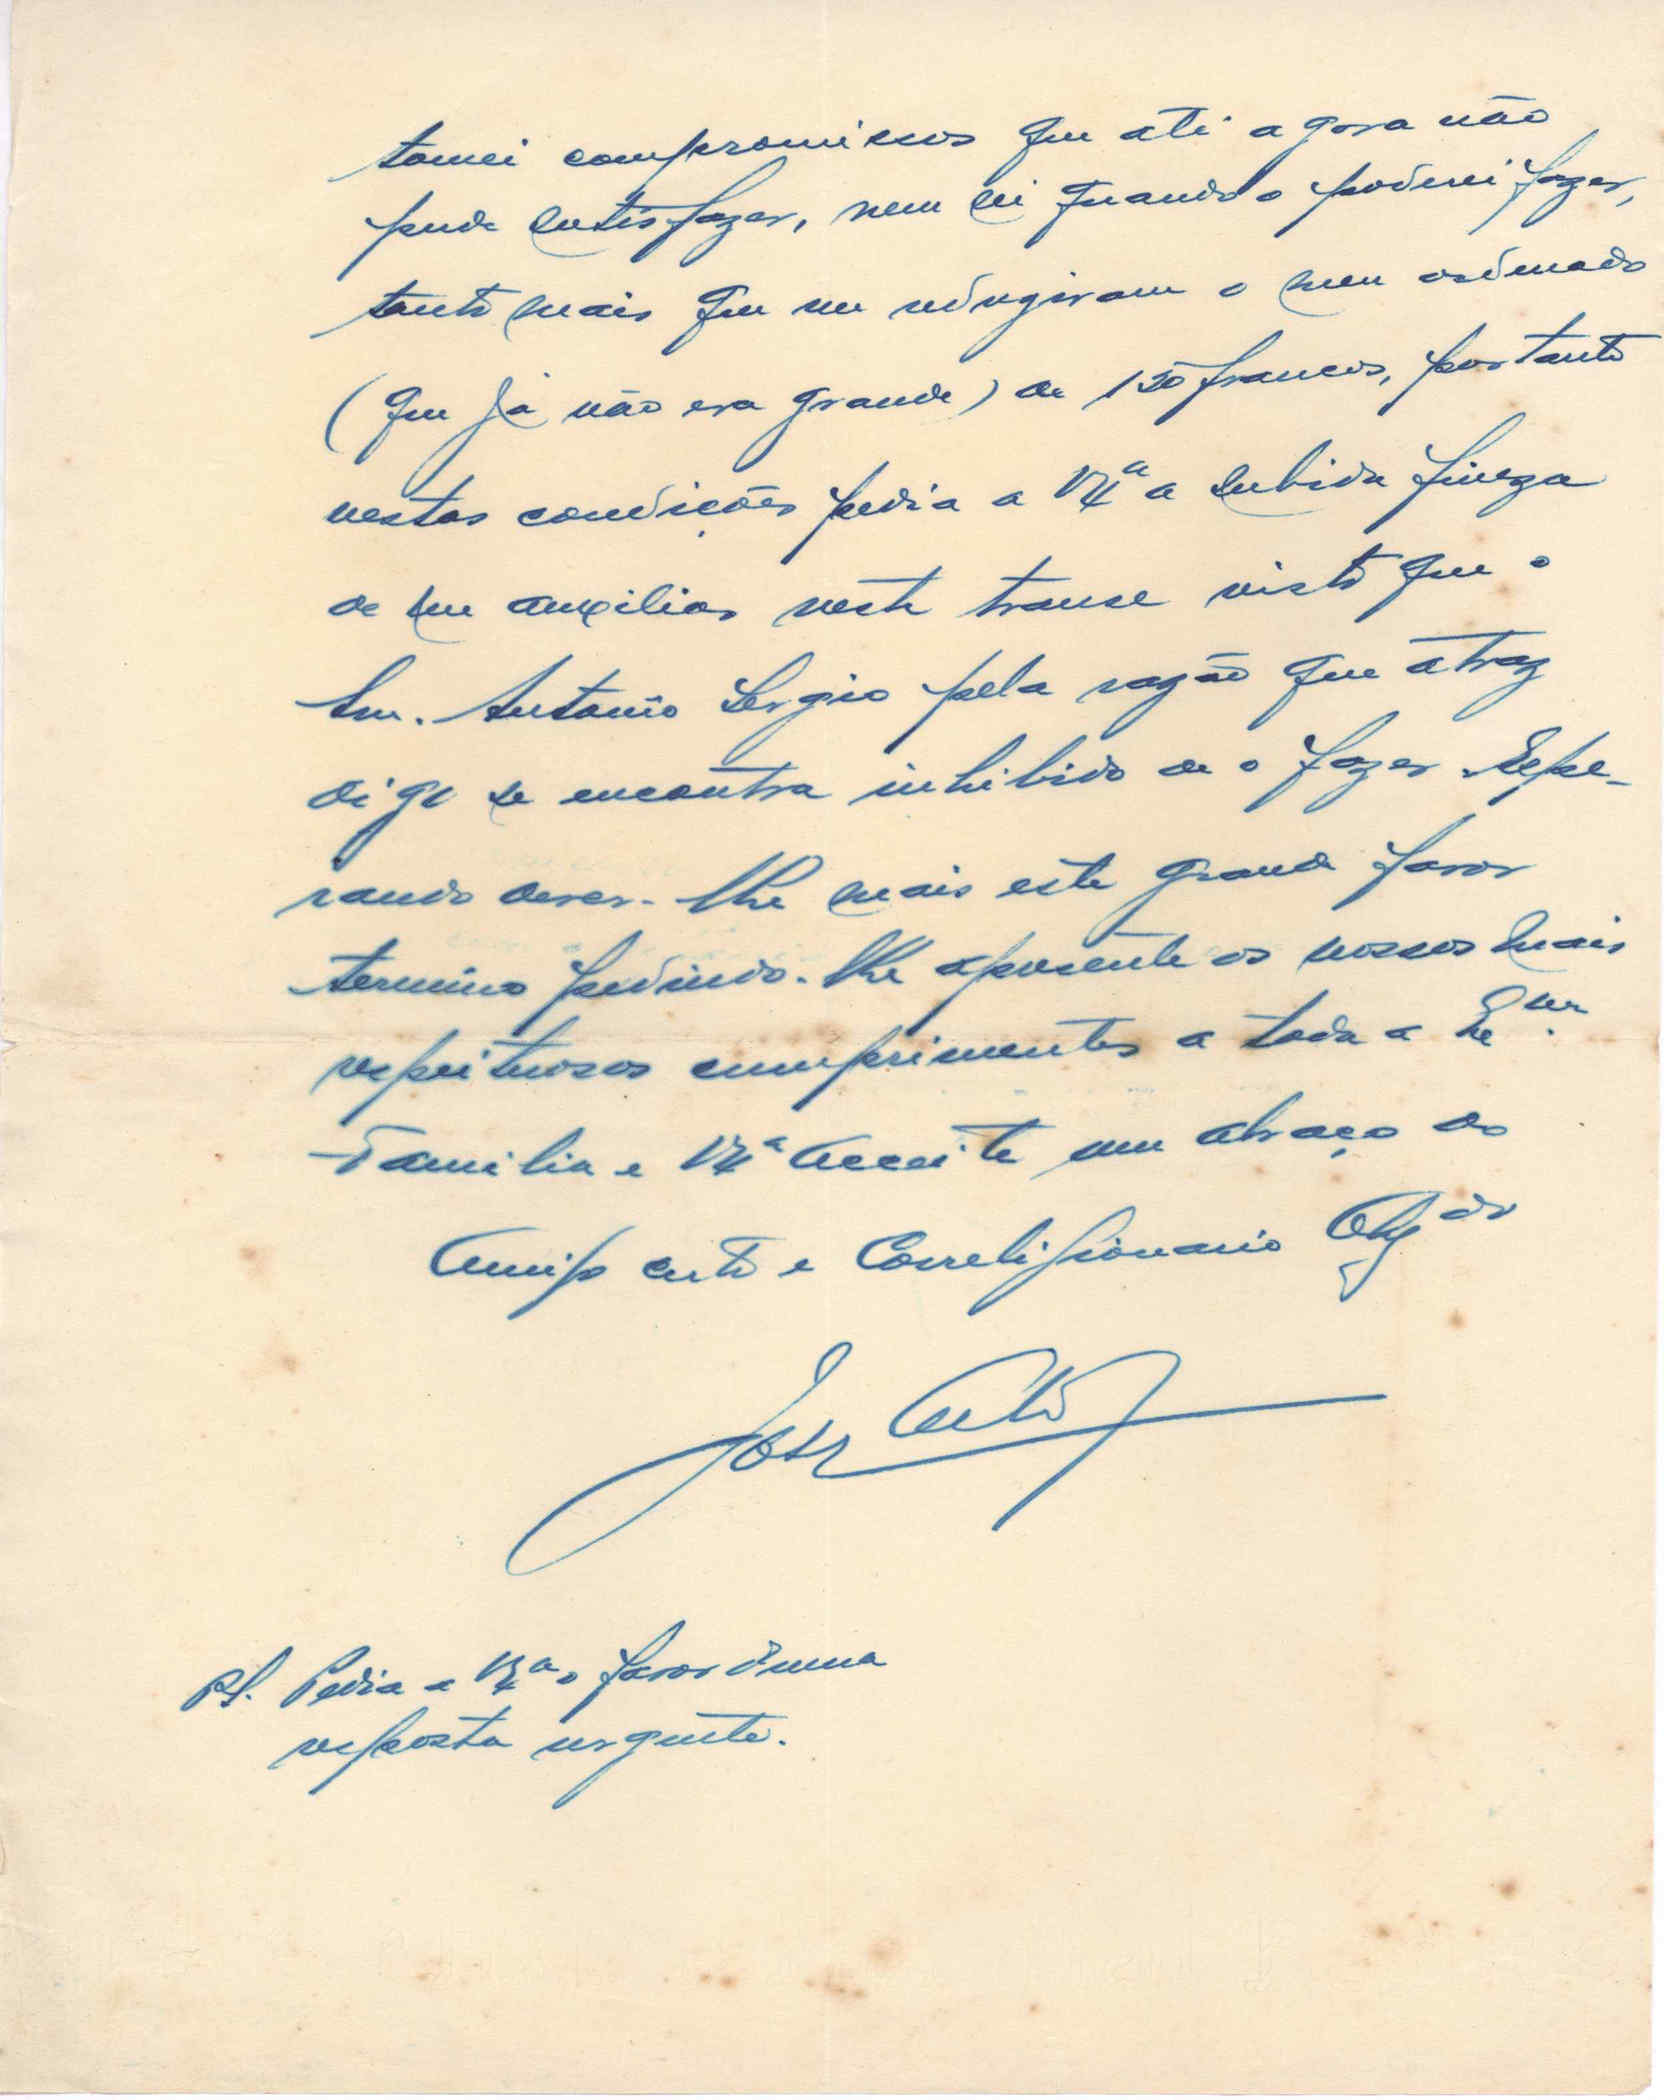 tomei compromissos que até agora não
pude satisfazer, nem sei quando o poderei fazer,
tanto mais que me redugiram o meu ordenado
(que já não era grande) de 150 francos, portanto
nestas condições pedia a V. Ex.ª a subida fineza
de me auxiliar neste transe visto que o
Snr. Antonio Sergio pela razão que atraz
digo se encontra inhibido de o fazer. Espe-
rando dever-lhe mais este grande favor
termino pedindo-lhe apresente os nossos mais
respeituosos cumprimentos a toda a
Familia e V. Ex.ª acceite um abraço do
Amigo certo e Correligionario Obgdo
José
PS. Pedia a V. Ex.ª o favor d'uma
resposta urgente.